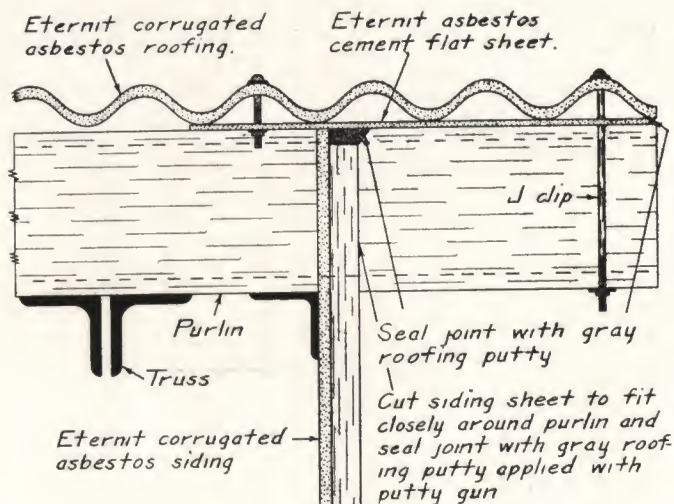 Eternit corrugated
asbestos roofing.
Eternit asbestos
cement flat sheet.
J clip
Purlin
Truss
Seal joint with gray
roofing putty
Cut siding sheet to fit
closely around purlin and
seal joint with gray roof-
ing putty applied with
putty gun
Eternit corrugated
asbestos siding